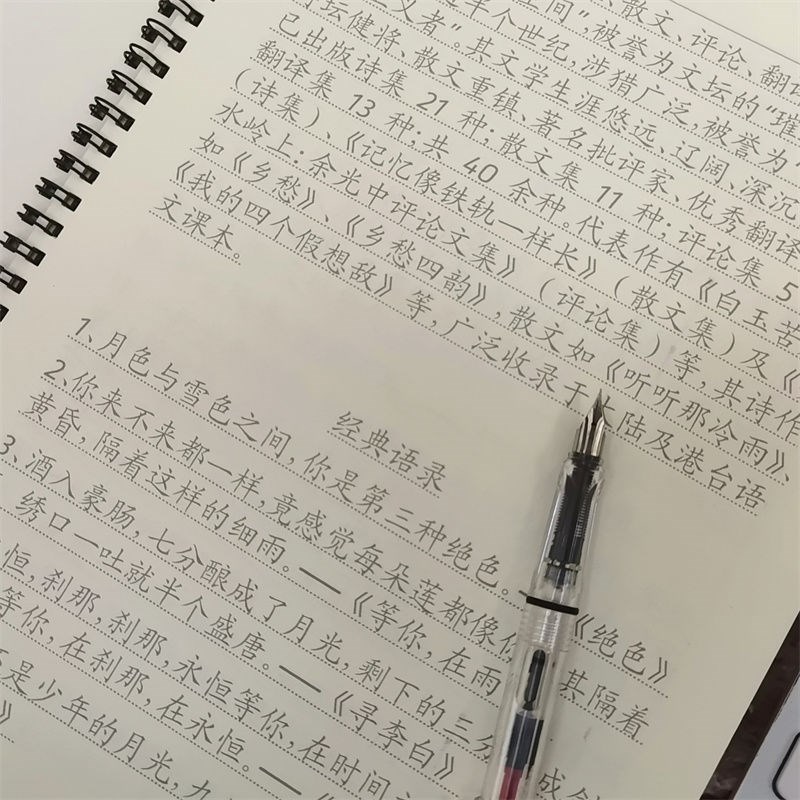 、散文、评论、翻译
间",被誉为文坛的"璀
半个世纪,涉猎广泛,被誉为
主义者"。其文学生涯悠远、辽阔、深沉
坛健将、散文重镇、著名批评家、优秀翻译
已出版诗集 21 种;散文集 11 种;评论集 5
翻译集 13 种;共 40 余种。代表作有《白玉苦
(诗集)、《记忆像铁轨一样长》(散文集)及《
水岭上:余光中评论文集》(评论集)等,其诗作
如《乡愁》、《乡愁四韵》,散文如《听听那冷雨》、
《我的四个假想敌》等,广泛收录于 陆及港台语
文课本。
经典语录
1、月色与雪色之间,你是第三种绝色。《绝色》
2、你来不来都一样,竟感觉每朵莲都像你 其隔着
黄昏,隔着这样的细雨。——《等你,在雨
3、酒入豪肠,七分酿成了月光,剩下的三分 成
绣口一吐就半个盛唐。——《寻李白》
恒,刹那,刹那,永恒等你,在时间
等你,在刹那,在永恒。——《
是少年的月光,九
》